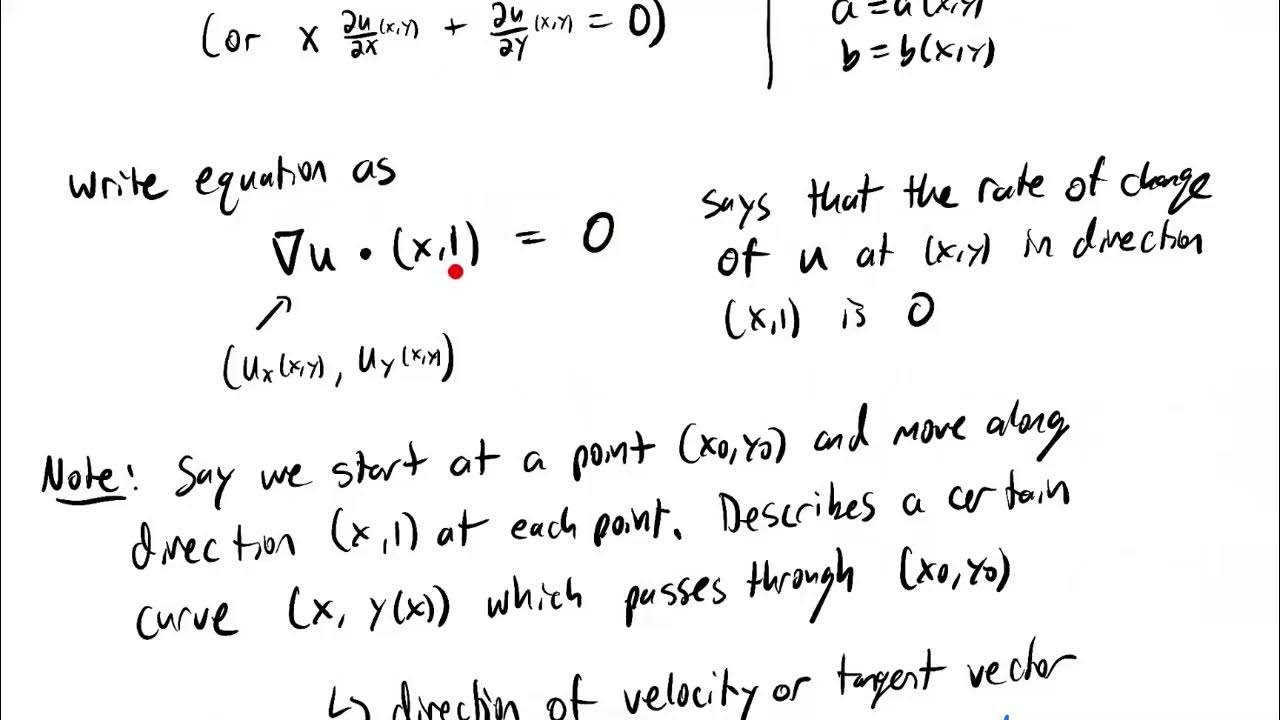 (or x ∂u/∂x (x,y) + ∂u/∂y (x,y) = 0)
a = a(x,y)
b = b(x,y)
write equation as
∇u • (x,1) = 0
(ux(x,y), uy(x,y))
says that the rate of change
of u at (x,y) in direction
(x,1) is 0
Note: Say we start at a point (x0,y0) and move along
direction (x,1) at each point. Describes a certain
curve (x, y(x)) which passes through (x0,y0)
↳ direction of velocity or tangent vector